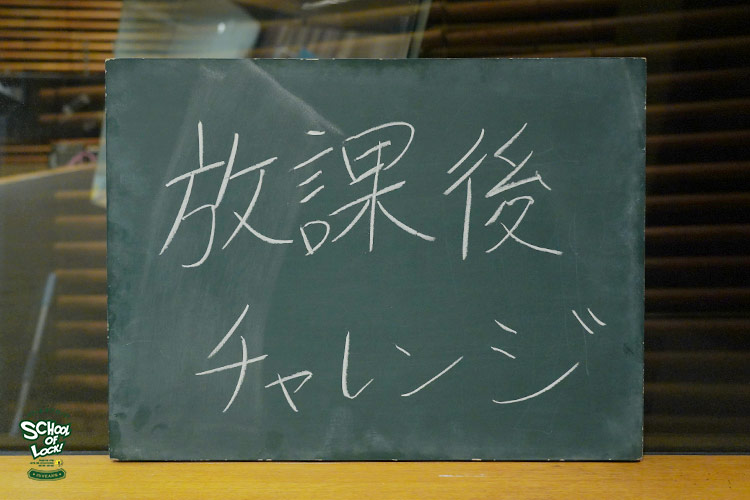 放課後
チャレンジ
SCHOOL
OF
LOCK!